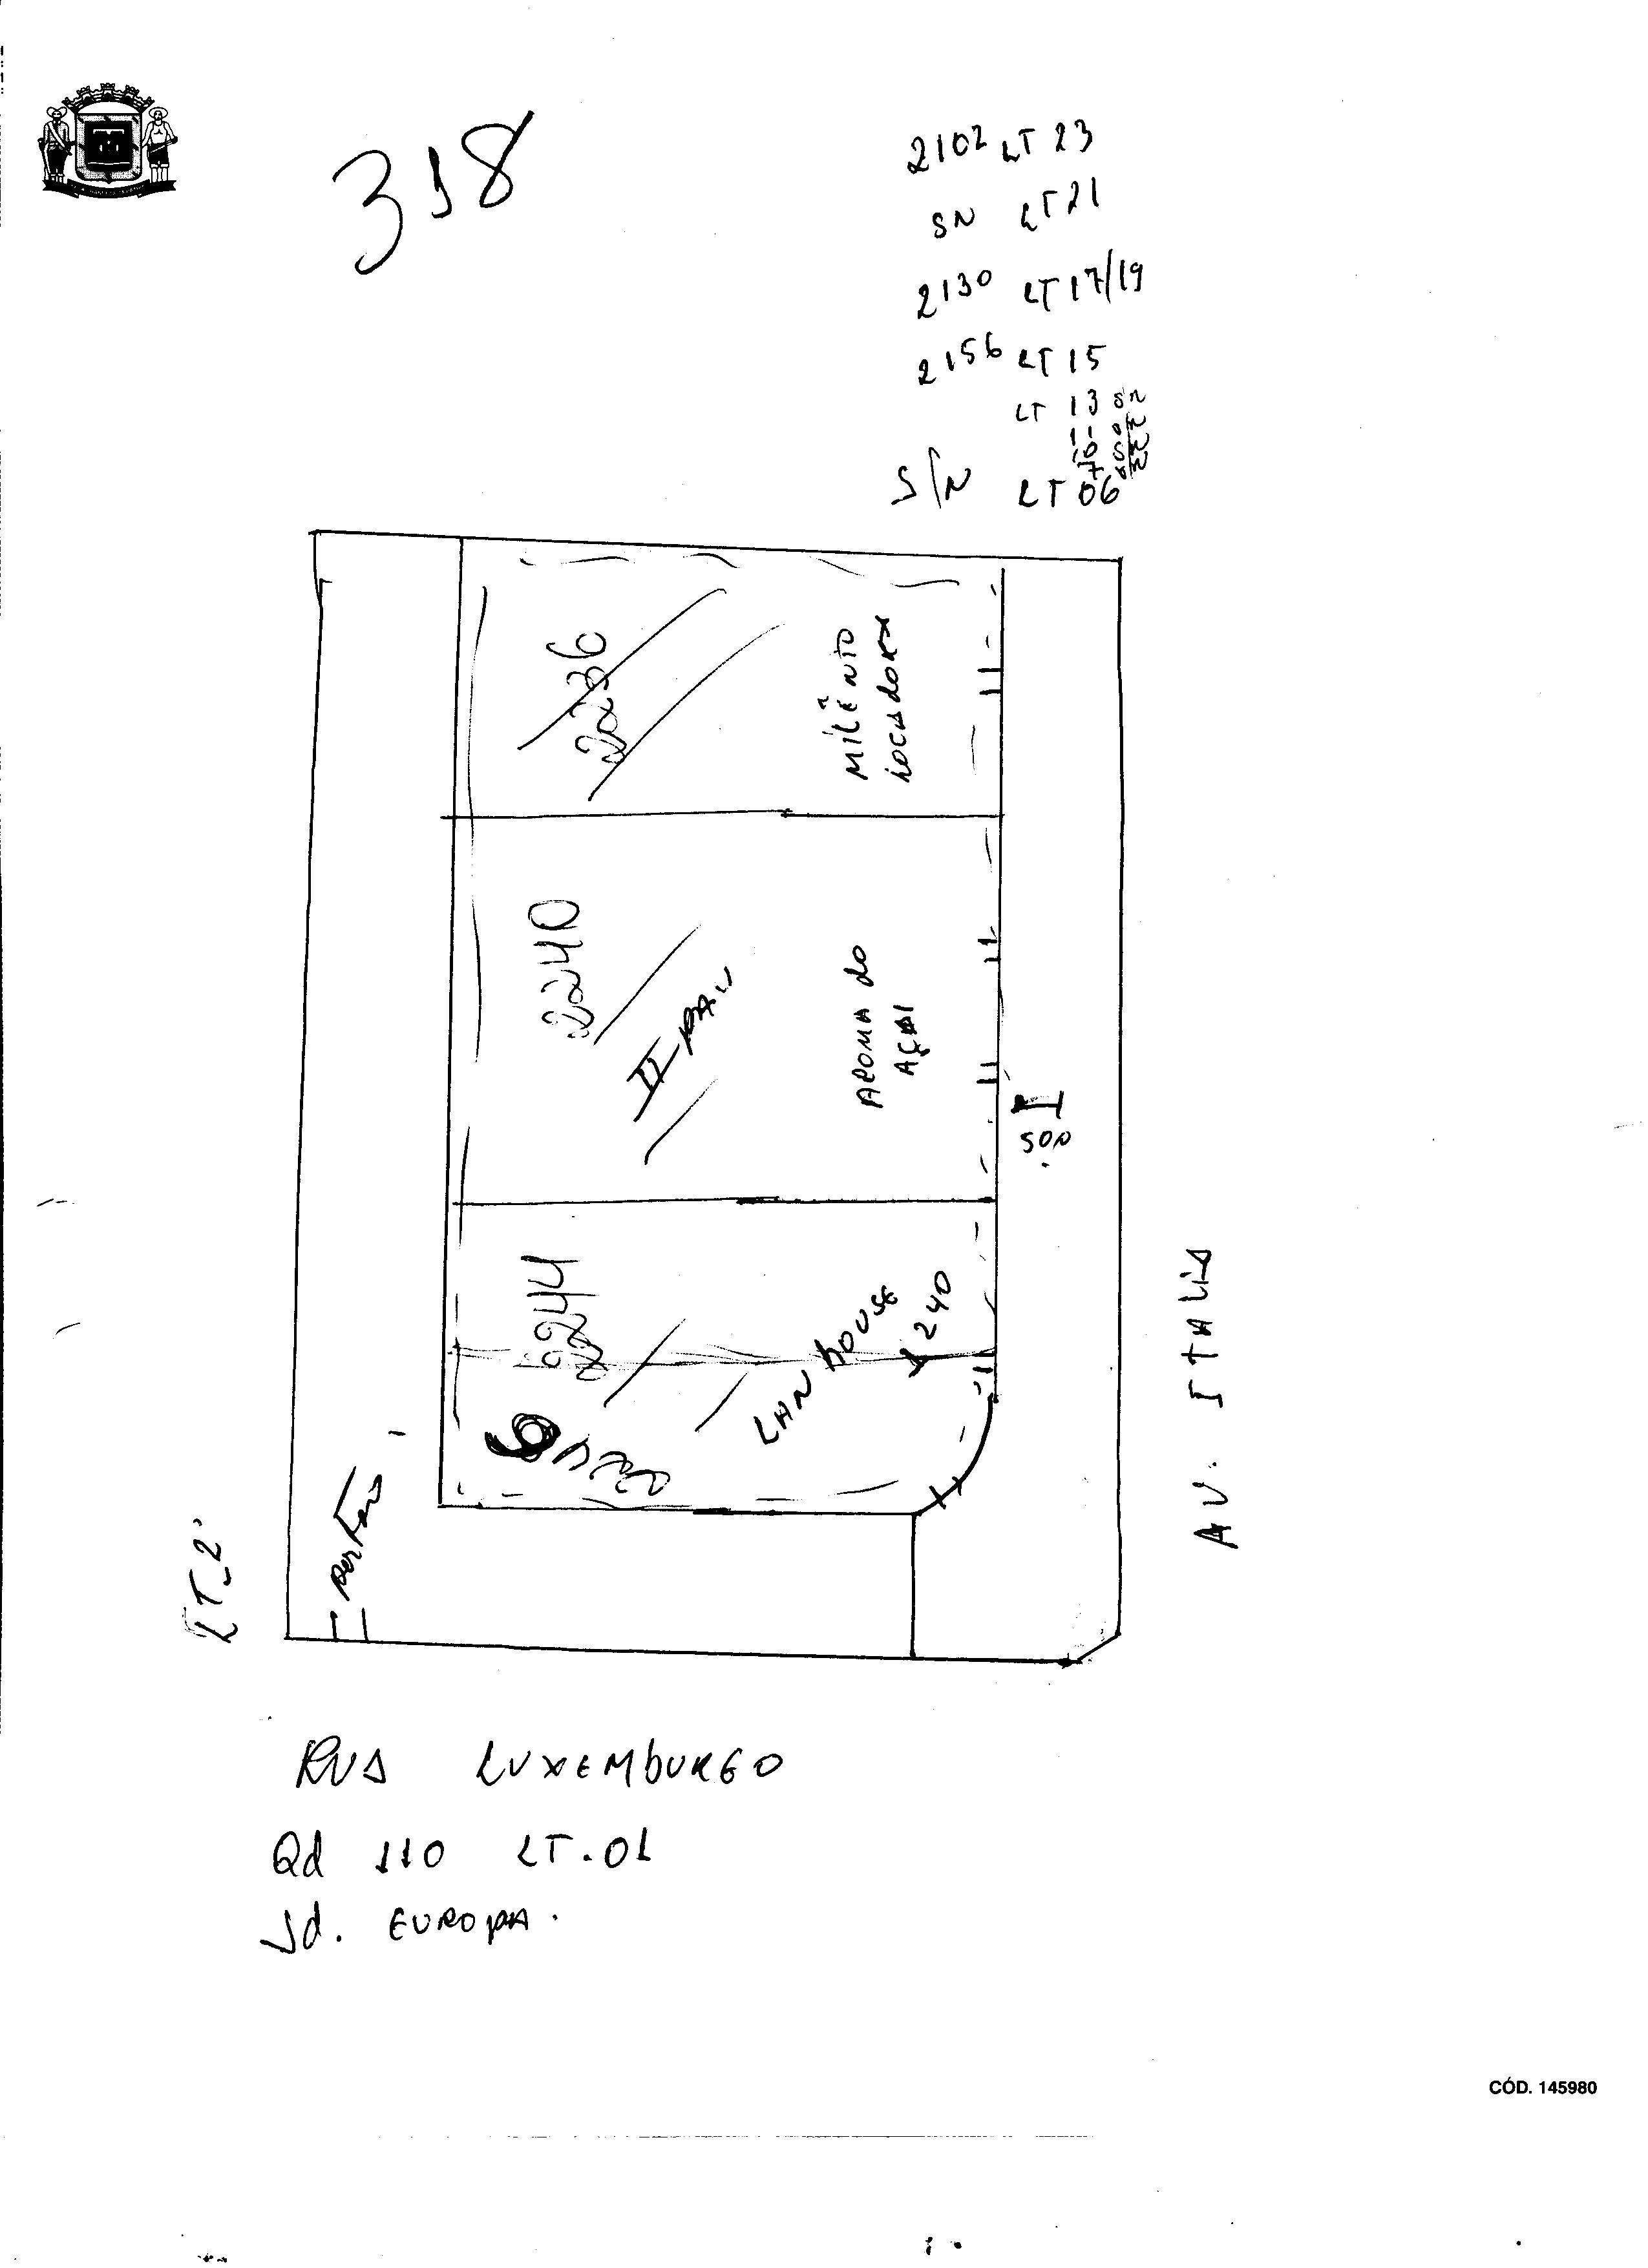 318
2102 LT 23
SN LT 21
2130 LT 17/19
2156 LT 15
LT 13 SN
11
10
7
S/N LT 06
2236
MILÊNIO
LOCADORA
2240
II PAV
AROMA do
AÇAI
SON
2244
LAN HOUSE
240
AV. ITALIA
Portão
LT 2
RUA LUXEMBURGO
Qd 110 LT. 01
Jd. EUROPA.
CÓD. 145980